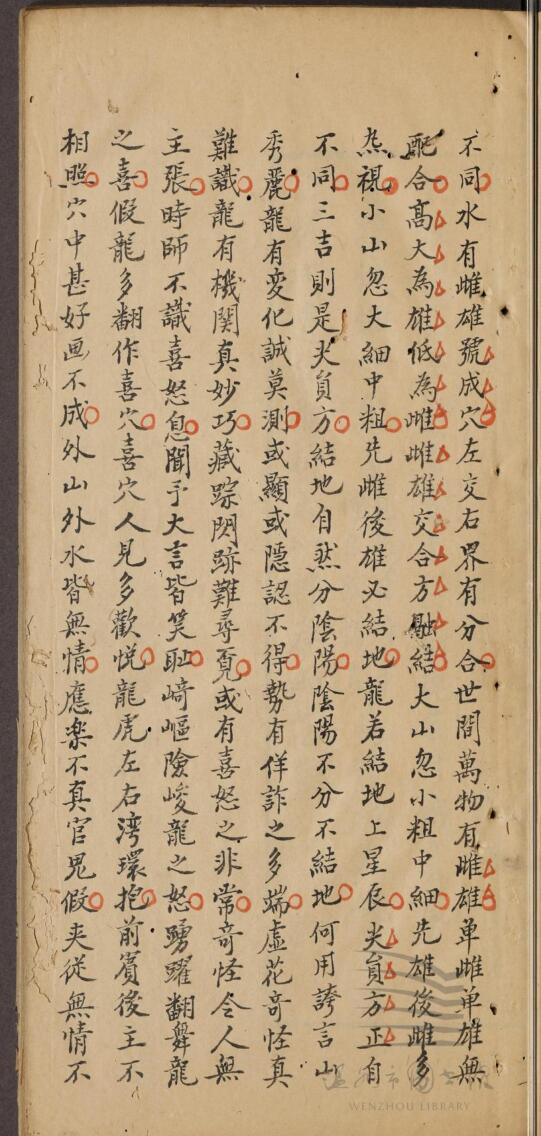 不同水有雌雄號成穴左交右界有分合世間萬物有雌雄单雌单雄無
配合髙大為雄低為雌雌雄交合方融結大山忽小粗中細先雄後雌多
炁視小山忽大細中粗先雌後雄必結地龍若結地上星辰尖負方正自
不同三吉則是尖負方結地自然分陰陽陰陽不分不結地何用誇言山
秀麗龍有変化誠莫測或顯或隱認不得勢有佯詐之多端虛花奇怪真
難識龍有機関真妙巧藏踪閃跡難尋覔或有喜怒之非常奇怪令人無
主張時師不識喜怒息聞予大言皆笑耻崎嶇險峻龍之怒踴躍翻舞龍
之喜假龍多翻作喜穴喜穴人見多歡悦龍虎左右湾環抱前賓後主不
相照穴中甚好画不成外山外水皆無情應楽不真官鬼假夹従無情不
WENZHOU LIBRARY